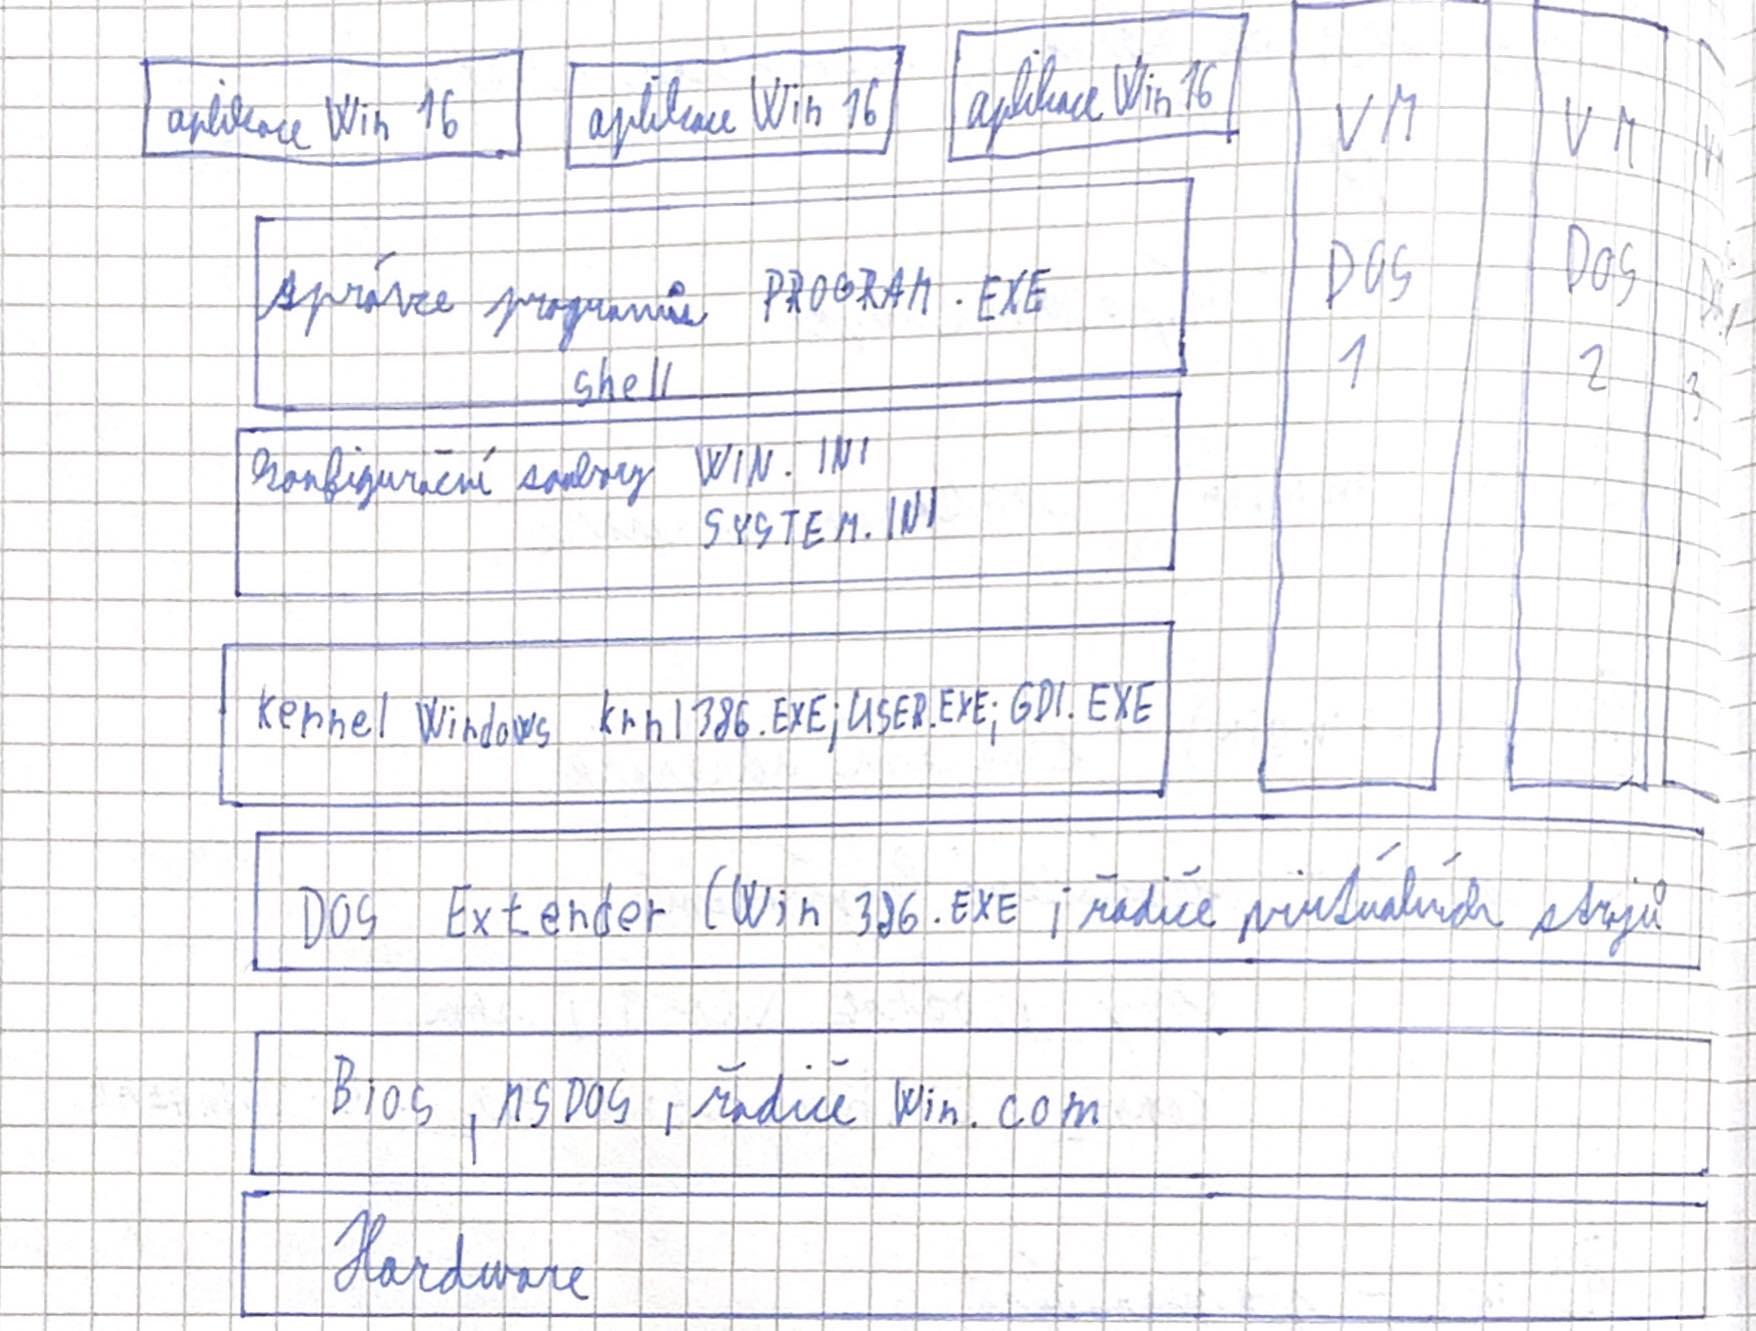 aplikace Win 16
aplikace Win 16
aplikace Win 16
VM
DOS
1
VM
DOS
2
3
správce programů PROGRAM.EXE
shell
konfigurační soubory WIN.INI
SYSTEM.INI
Kernel Windows krnl386.EXE; USER.EXE; GDI.EXE
DOS Extender (Win 386.EXE ; řadiče virtuálních strojů
Bios, MSDOS, řadiče Win.com
Hardware